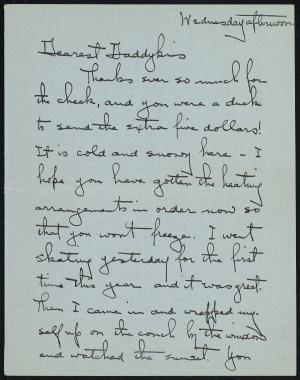 Wednesday afternoon
Dearest Daddykins
Thanks ever so much for
the check, and you were a duck
to send the extra five dollars!
It is cold and snowy here - I
hope you have gotten the heating
arrangements in order now so
that you won't freeze. I went
skating yesterday for the first
time this year and it was great.
Then I came in and wrapped my-
self up on the couch by the window
and watched the sunset. You